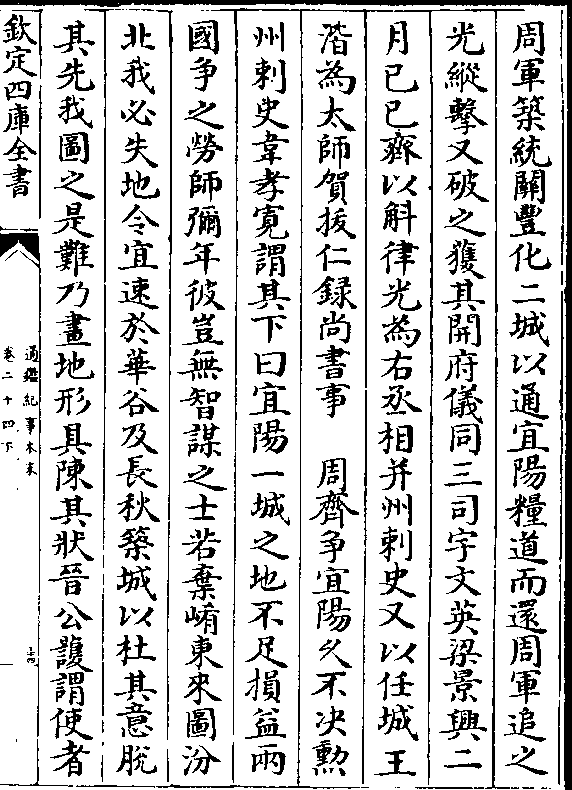 周軍築統關豐化二城以通宜陽糧道而還周軍追之
光縱擊又破之獲其開府儀同三司宇文英梁景興二
月已巳齊以斛律光為右丞相并州刺史又以任城王
湝為太師賀拔仁録尚書事 周齊争宜陽乆不决勲
州刺史韋孝寛謂其下曰宜陽一城之地不足損益兩
國争之勞師彌年彼豈無智謀之士若棄崤東來圖汾
北我必失地令宜速於華谷及長秋築城以杜其意脫
其先我圖之是難乃畫地形具陳其狀晉公䕶謂使者
欽定四庫全書
通鑑紀事本末
卷二十四下
十四